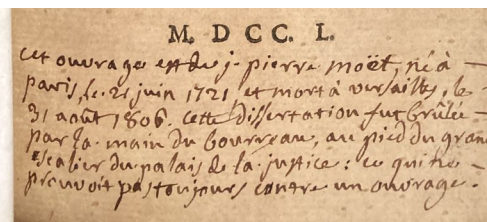 M. D CC. L.
cet ouvrage est de j. pierre moët, né à
paris, le 21 juin 1721, et mort à versailles, le
31 août 1806. cette dissertation fut brûlée
par la main du bourreau, au pied du grand
escalier du palais de la justice : ce qui ne
prouvoit pas toujours contre un ouvrage.